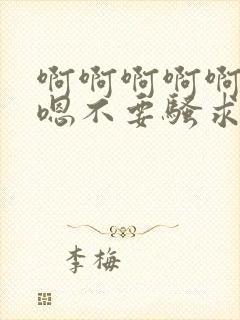 啊啊啊啊啊
嗯不要骚求
李梅